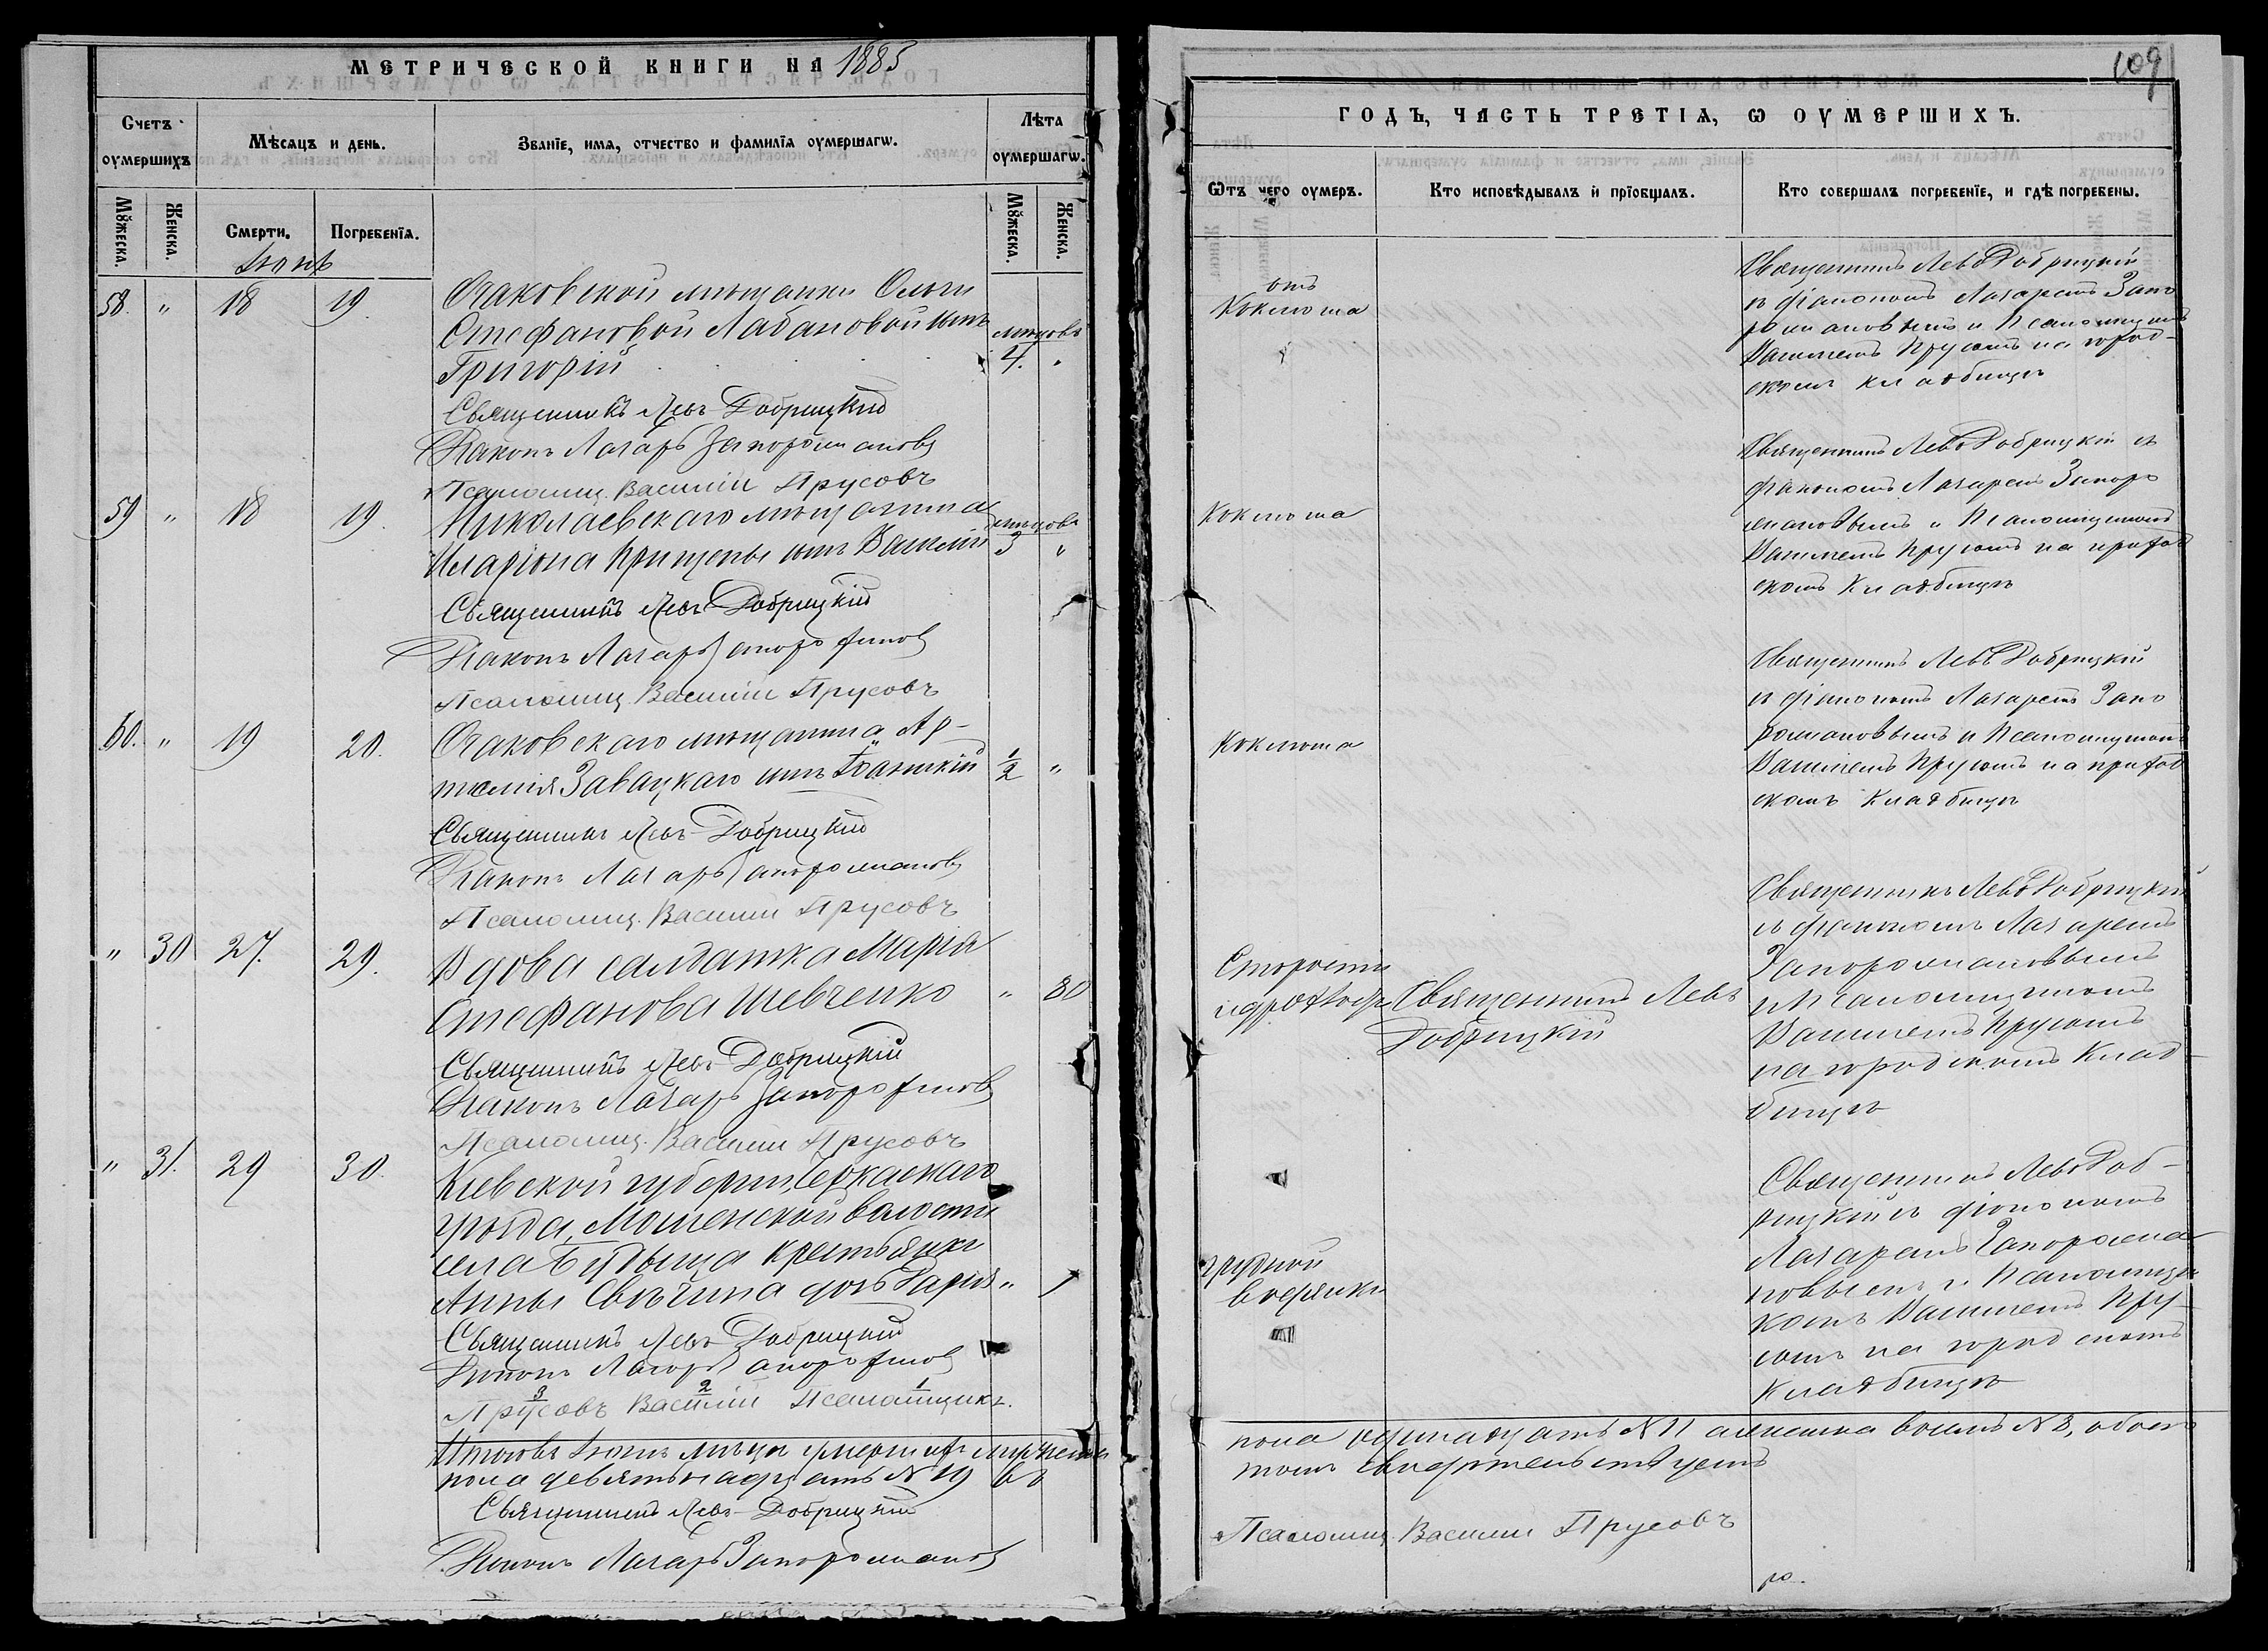 МЕТРИЧЕСКОЙ КНИГИ НА 1885
Счетъ оумершихъ
Мѣсяцъ и день.
Званїе, имя, отчество и фамилїя оумершагѡ.
Лѣта оумершагѡ.
Мꙋжеска.
Женска.
Смерти.
Погребенїя.
Мꙋжеска.
Женска.
Іюнь
58. " 18 19. Очаковской мѣщанки Ольги
Стефановой Лабановой сынъ мѣсяцовъ
Григорій 4. "
Священникъ Левъ Добрицкій
Діаконъ Лазарь Запорожановъ
Псаломщ. Василій Прусовъ
59 " 18 19. Николаевскаго мѣщанина мѣсяцовъ
Иларіона Прищепы сынъ Василій 3 "
Священникъ Левъ Добрицкій
Діаконъ Лазарь
Псаломщ. Василій Прусовъ
60. " 19 20. Очаковскаго мѣщанина Ар-
темія Завацкаго сынъ 1/2 "
Священникъ Левъ Добрицкій
Діаконъ Лазарь
Псаломщ. Василій Прусовъ
" 30 27. 29. Вдова салдатка Марія
Стефанова Шевченко " 80
Священникъ Левъ Добрицкій
Діаконъ Лазарь
Псаломщ. Василій Прусовъ
" 31. 29 30. Кіевской губерніи, Черкаскаго
уѣзда, Мошенской волости
села Будыща крестьянки
Анны Свѣчина дочь Дарія " 1
Священникъ Левъ Добрицкій
Діаконъ Лазарь
3 2 1
Прусовъ Василій Псаломщикъ.
Итого въ Іюнѣ мѣсяцѣ умершихъ мужеска
пола девятьнадцать N 19 во
Священникъ Левъ Добрицкій
Діаконъ Лазарь Запорожановъ
109
ГОДЪ, ЧАСТЬ ТРЕТІЯ, Ѡ ОУМЕРШИХЪ.
Ѿтъ чего оумеръ.
Кто исповѣдывалъ и прїобщалъ.
Кто совершалъ погребенїе, и гдѣ погребены.
отъ
Коклюша
Священникъ Левъ Добрицкій
съ діакономъ Лазаремъ Запо
рожановымъ и Псаломщикомъ
Василіемъ Прусомъ на город-
скомъ кладбищѣ
Коклюша
Священникъ Левъ Добрицкій съ
діакономъ Лазаремъ Запоро
жановымъ и Псаломщикомъ
Василіемъ Прусомъ на приход
скомъ Кладбищѣ
Коклюша
Священникъ Левъ Добрицкій
съ діакономъ Лазаремъ Запо
рожановымъ и Псаломщикомъ
Василіемъ Прусомъ на приход
скомъ Кладбищѣ
Старости
Священникъ Левъ
Добрицкій
Священникъ Левъ Добрицкій
съ діакономъ Лазаремъ
Запорожановымъ
и Псаломщикомъ
Василіемъ Прусомъ
на городскомъ Клад-
бищѣ
грудной
водянки
Священникъ Левъ Доб-
рицкій съ діакономъ
Лазаремъ Запорожа-
новымъ и Псаломщи
комъ Василіемъ Пру-
сомъ на городскомъ
Кладбищѣ
пола одинадцать N 11 а женска восемь N 8, обоемъ
томъ свидѣтельствуемъ
Псаломщ. Василій Прусовъ